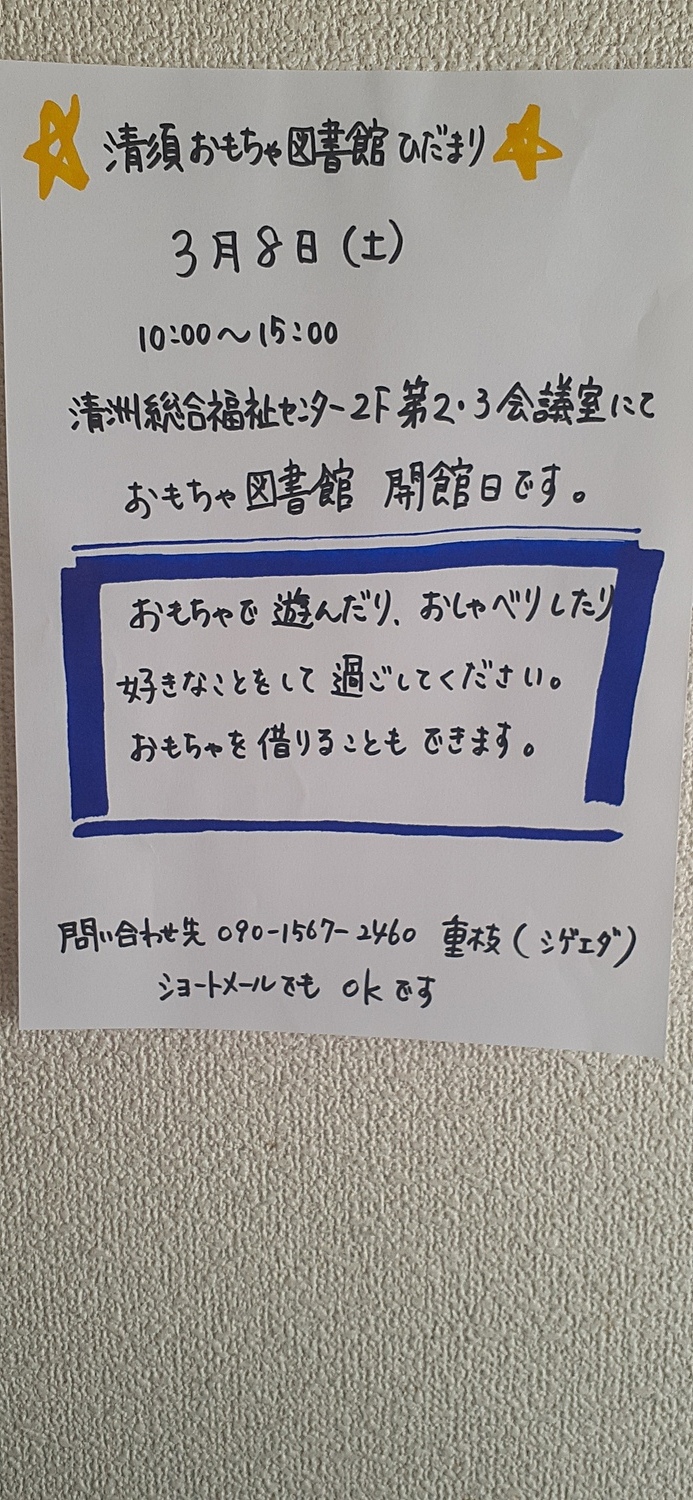 清須おもちゃ図書館ひだまり
3月8日(土)
10:00〜15:00
清洲総合福祉センター2F第2・3会議室にて
おもちゃ図書館 開館日です。
おもちゃで遊んだり、おしゃべりしたり
好きなことをして過ごしてください。
おもちゃを借りることもできます。
問い合わせ先 090-1567-2460 重枝(シゲエダ)
ショートメールでも okです